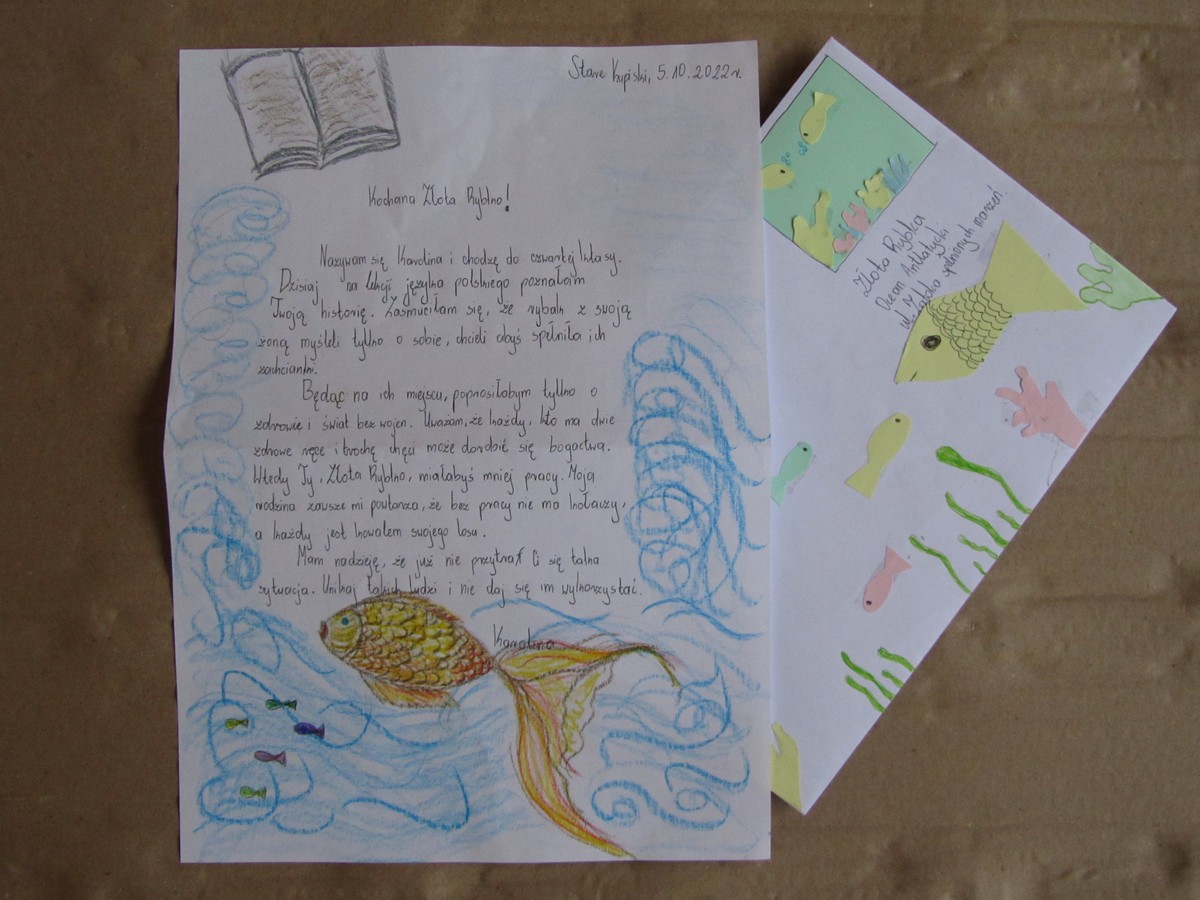 Stare Kupiski, 5.10.2022r.
Kochana Złota Rybko!
Nazywam się Karolina i chodzę do czwartej klasy.
Dzisiaj na lekcji języka polskiego poznałam
Twoją historię. Zasmuciłam się, że rybak z swoją
żoną myśleli tylko o sobie, chcieli abyś spełniła ich
zachcianki.
Będąc na ich miejscu, poprosiłabym tylko o
zdrowie i świat bez wojen. Uważam, że każdy, kto ma dwie
zdrowe ręce i trochę chęci może dorobić się bogactwa.
Wtedy Ty, Złota Rybko, miałabyś mniej pracy. Moja
rodzina zawsze mi powtarza, że bez pracy nie ma kołaczy,
a każdy jest kowalem swojego losu.
Mam nadzieję, że już nie przytrafi Ci się taka
sytuacja. Unikaj takich ludzi i nie daj się im wykorzystać.
Karolina
Złota Rybka
Ocean Antlatycki
ul. Zatoka spełnionych marzeń